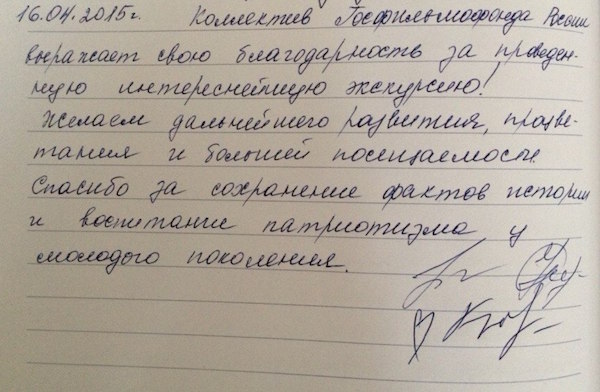 16.04.2015г. Коллектив Госфильмофонда России
выражает свою благодарность за проведен-
ную интереснейшую экскурсию!
Желаем дальнейшего развития, процве-
тания и большей посещаемости.
Спасибо за сохранение фактов истории
и воспитание патриотизма у
молодого поколения.